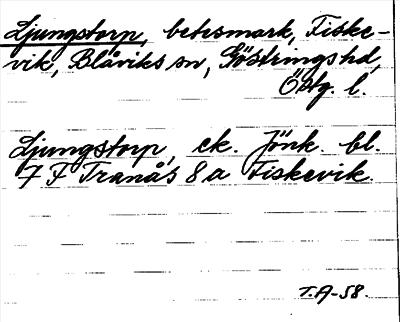 Ljungstorp, betesmark, Fiske-
vik, Blåviks sn, Göstringshd,
Östg. l.
Ljungstorp, ek. Jönk. bl.
7 F Tranås 8 a Fiskevik.
T.A-58.